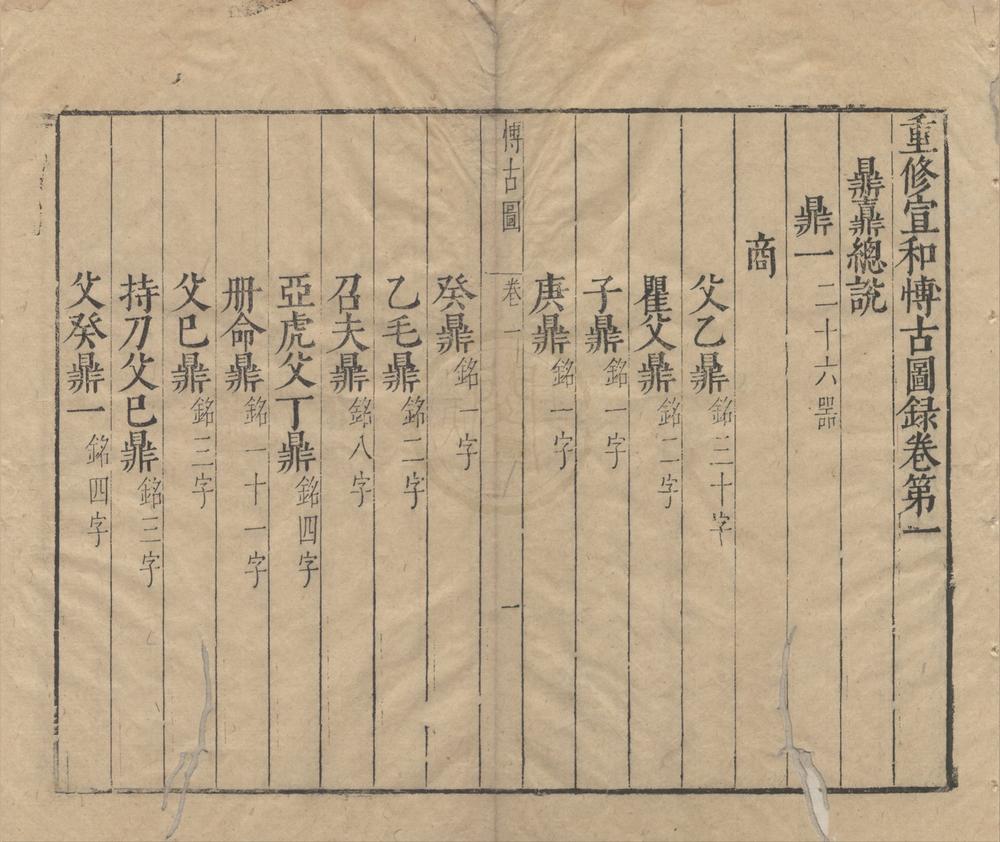 重修宣和博古圖録卷第一
鼎鼒總說
鼎一 二十六器
商
父乙鼎 銘二十字
瞿父鼎 銘二字
子鼎 銘一字
庚鼎 銘一字
博古圖 卷一 一
癸鼎 銘一字
乙毛鼎 銘二字
召夫鼎 銘八字
亞虎父丁鼎 銘四字
册命鼎 銘一十一字
父己鼎 銘三字
持刀父己鼎 銘三字
父癸鼎一 銘四字